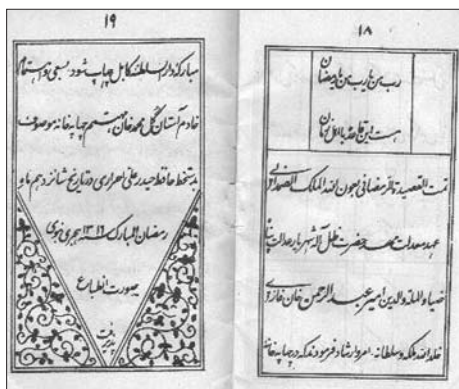 ۱۸
رب من یا رب من یا رمضان
هست این قاعده
تمت القصیده رمضانی بعون الله الملک الصمدانی
عهد معدلت مهد حضرت ظل اله شهریار عدالت پناه
ضیاء المله والدین امیر عبدالرحمن خان غازی
خلد الله ملکه و سلطانه. امر و ارشاد فرمودند که در چاپه خانه
۱۹
مبارکه دارالسلطنه کابل چاپ شود. بسعی و اهتمام
خادم آستان گل محمد خان مهتمم چاپه خانه موصوف
بدستخط حافظ حیدر علی احراری در تاریخ شانزدهم ماه
رمضان المبارک سنه ۱۳۱۶ هجری نبوی
صورت انطباع
پذیرفت